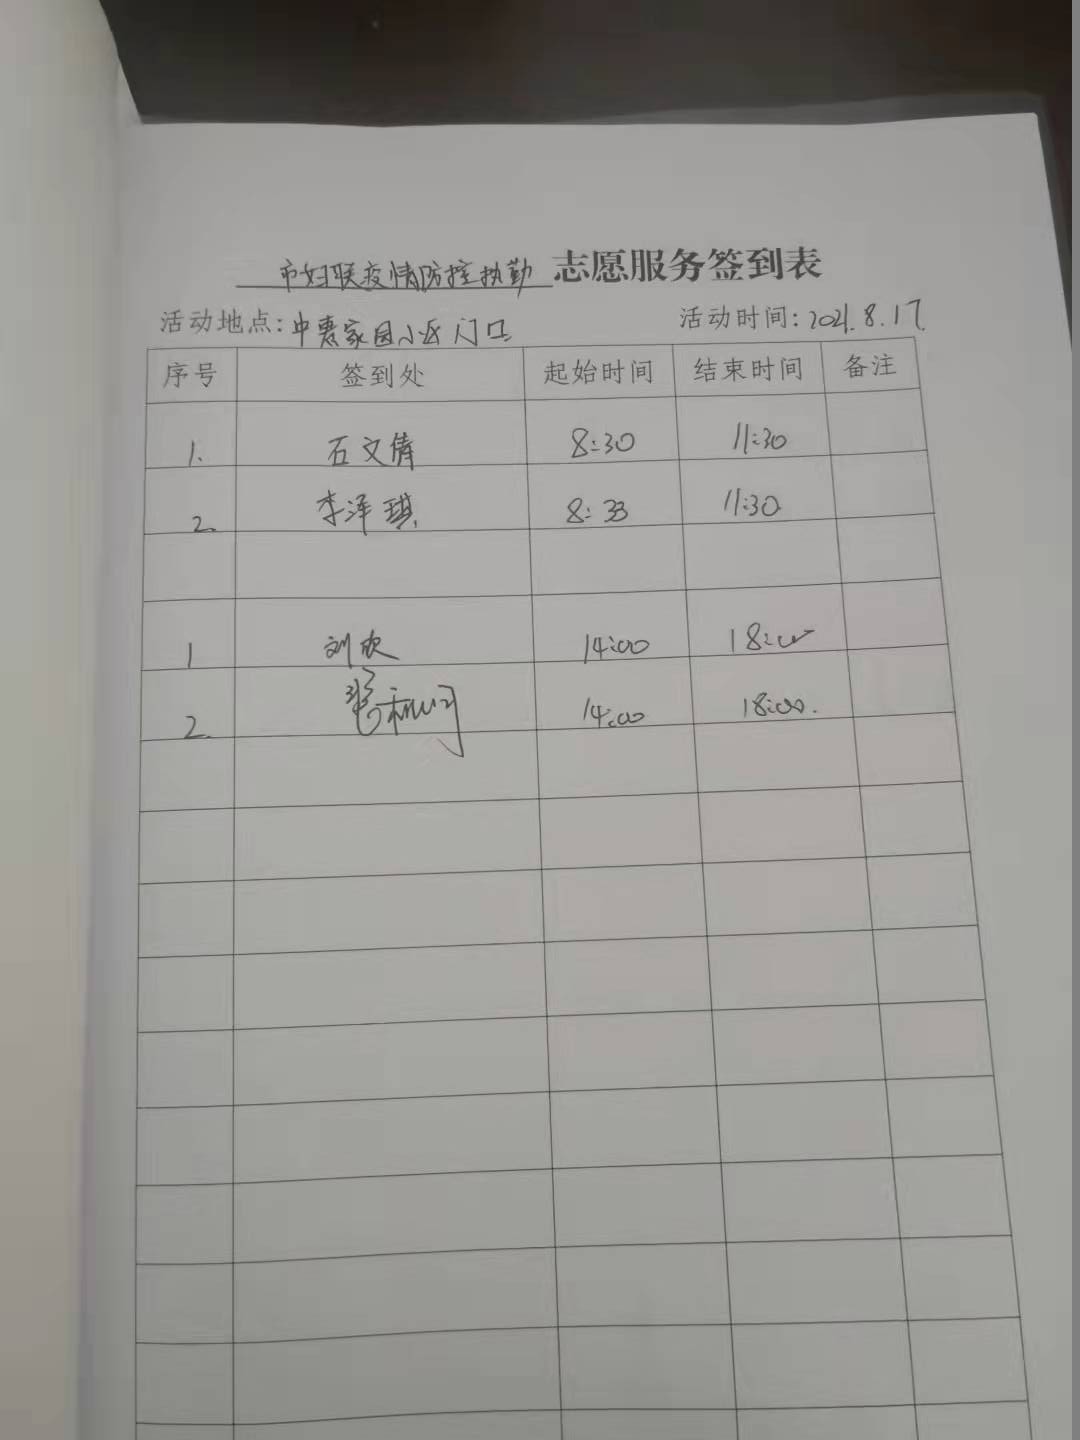 市妇联疫情防控执勤志愿服务签到表
活动地点:中惠家园小区门口 活动时间:2021.8.17
序号 签到处 起始时间 结束时间 备注
1. 石文倩 8:30 11:30
2. 李泽琪 8:33 11:30
1 刘欢 14:00 18:00
2. 14:00 18:00.